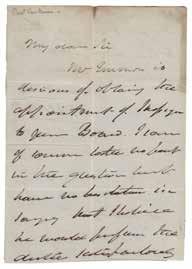 My dear Sir
Mr Emmons is
desirous of obtaining the
appointment of
to your Board. I can
of course take no part
in the question but
have no hesitation in
saying that I believe
he would perform the
duties satisfactorily